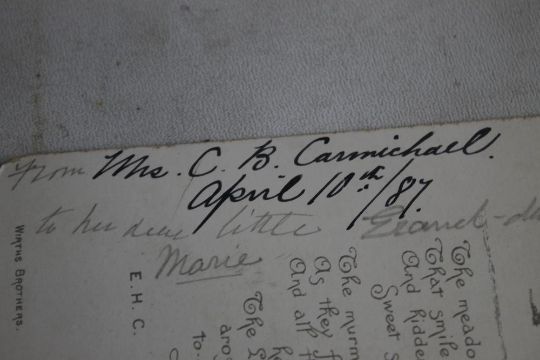 From Mrs. C. B. Carmichael.
April 10th/87.
to her dear little Grand-da
Marie
WIRTHS BROTHERS.
E. H. C.
The meado
That smile
And hidde
Sweet S
The murm
As they f
And all t
h
The L
aro
to